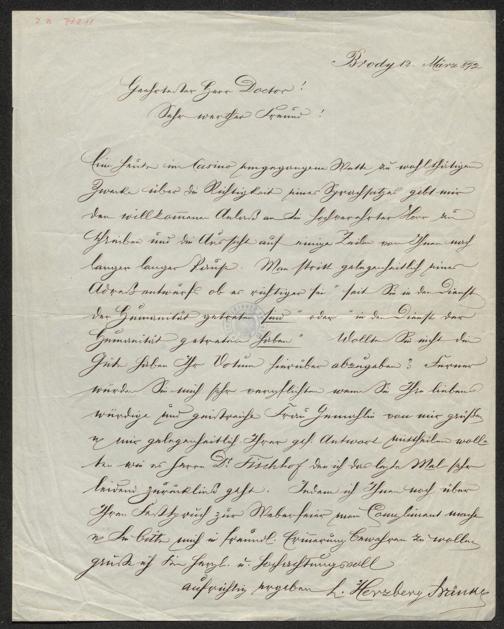 Brody 12. März 892
Geehrtester Herr Doctor!
Sehr werther Freund!
Eine heute im Casino eingegangene Wette zu wohlthätigem
Zwecke über die Richtigkeit eines Sprachsatzes gibt mir
den willkommenen Anlaß an Sie hochverehrter Herr zu
schreiben und die Aussicht auf einige Zeilen von Ihnen nach
langer langer Pause. Man stritt gelegenheitlich eines
Adreßentwurfs ob es richtiger sei "seit Sie in den Dienst
der Humanität getreten sind" oder "in den Dienst der
Humanität getreten haben" Wollten Sie nicht die
Güte haben Ihr Votum hierüber abzugeben? Ferner
würden Sie mich sehr verpflichten wenn Sie Ihre liebens
würdige und geistreiche Frau Gemahlin von mir grüßten
u mir gelegenheitlich Ihrer gef. Antwort mittheilen woll-
ten wie es Herrn Dr Fischhof den ich das letzte Mal sehr
leidend zurückließ geht. Indem ich Ihnen noch über
Ihren Festspruch zur Weberfeier mein Compliment mache
u Sie bitte mich in freundl. Erinnerung bewahren zu wollen
grüße ich Sie herzl. u. hochachtungsvoll
aufrichtig ergeben L. Herzberg Fränkel